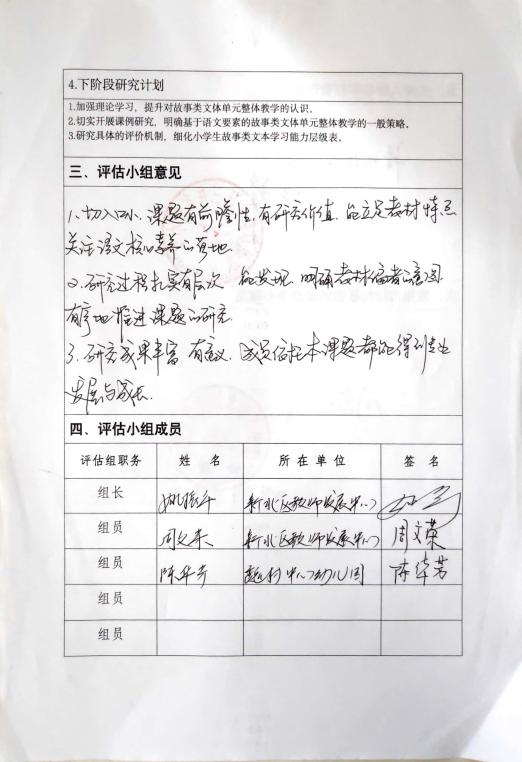 4.下阶段研究计划
1.加强理论学习，提升对故事类文体单元整体教学的认识。
2.切实开展课例研究，明确基于语文要素的故事类文体单元整体教学的一般策略。
3.研究具体的评价机制，细化小学生故事类文本学习能力层级表。
三、评估小组意见
1、切入口小，课题有前瞻性，有研究价值，能立足教材特点
关注语文核心素养的落地
2、研究过程扎实有层次 能发现、明确教材编者的意图
有序地推进课题的研究
3、研究成果丰富 有意义，成员依托本课题都能得到专业
发展与成长.
四、评估小组成员
评估组职务 姓 名 所 在 单 位 签 名
组长 新北区教师发展中心
组员 周文荣 新北区教师发展中心 周文荣
组员 陈华芳 魏村中心幼儿园 陈华芳
组员
组员